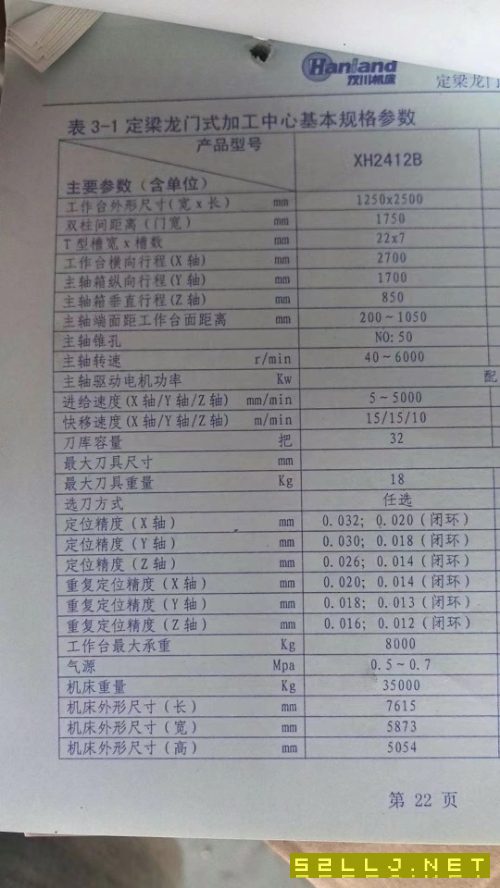 Hanland
汉川机床
定梁龙门
表 3-1 定梁龙门式加工中心基本规格参数
产品型号 XH2412B
主要参数（含单位）
工作台外形尺寸(宽 x 长) mm 1250x2500
双柱间距离（门宽） mm 1750
T 型槽宽 x 槽数 mm 22x7
工作台横向行程(X 轴) mm 2700
主轴箱纵向行程(Y 轴) mm 1700
主轴箱垂直行程(Z 轴) mm 850
主轴端面距工作台面距离 mm 200～1050
主轴锥孔 NO: 50
主轴转速 r/min 40～6000
主轴驱动电机功率 Kw 配
进给速度(X 轴/Y 轴/Z 轴) mm/min 5～5000
快移速度(X 轴/Y 轴/Z 轴) m/min 15/15/10
刀库容量 把 32
最大刀具尺寸 mm
最大刀具重量 Kg 18
选刀方式 任选
定位精度（X 轴） mm 0.032; 0.020（闭环）
定位精度（Y 轴） mm 0.030; 0.018（闭环）
定位精度（Z 轴） mm 0.026; 0.014（闭环）
重复定位精度（X 轴） mm 0.020; 0.014（闭环）
重复定位精度（Y 轴） mm 0.018; 0.013（闭环）
重复定位精度（Z 轴） mm 0.016; 0.012（闭环）
工作台最大承重 Kg 8000
气源 Mpa 0.5～0.7
机床重量 Kg 35000
机床外形尺寸（长） mm 7615
机床外形尺寸（宽） mm 5873
机床外形尺寸（高） mm 5054
第 22 页
52LLJ.NET